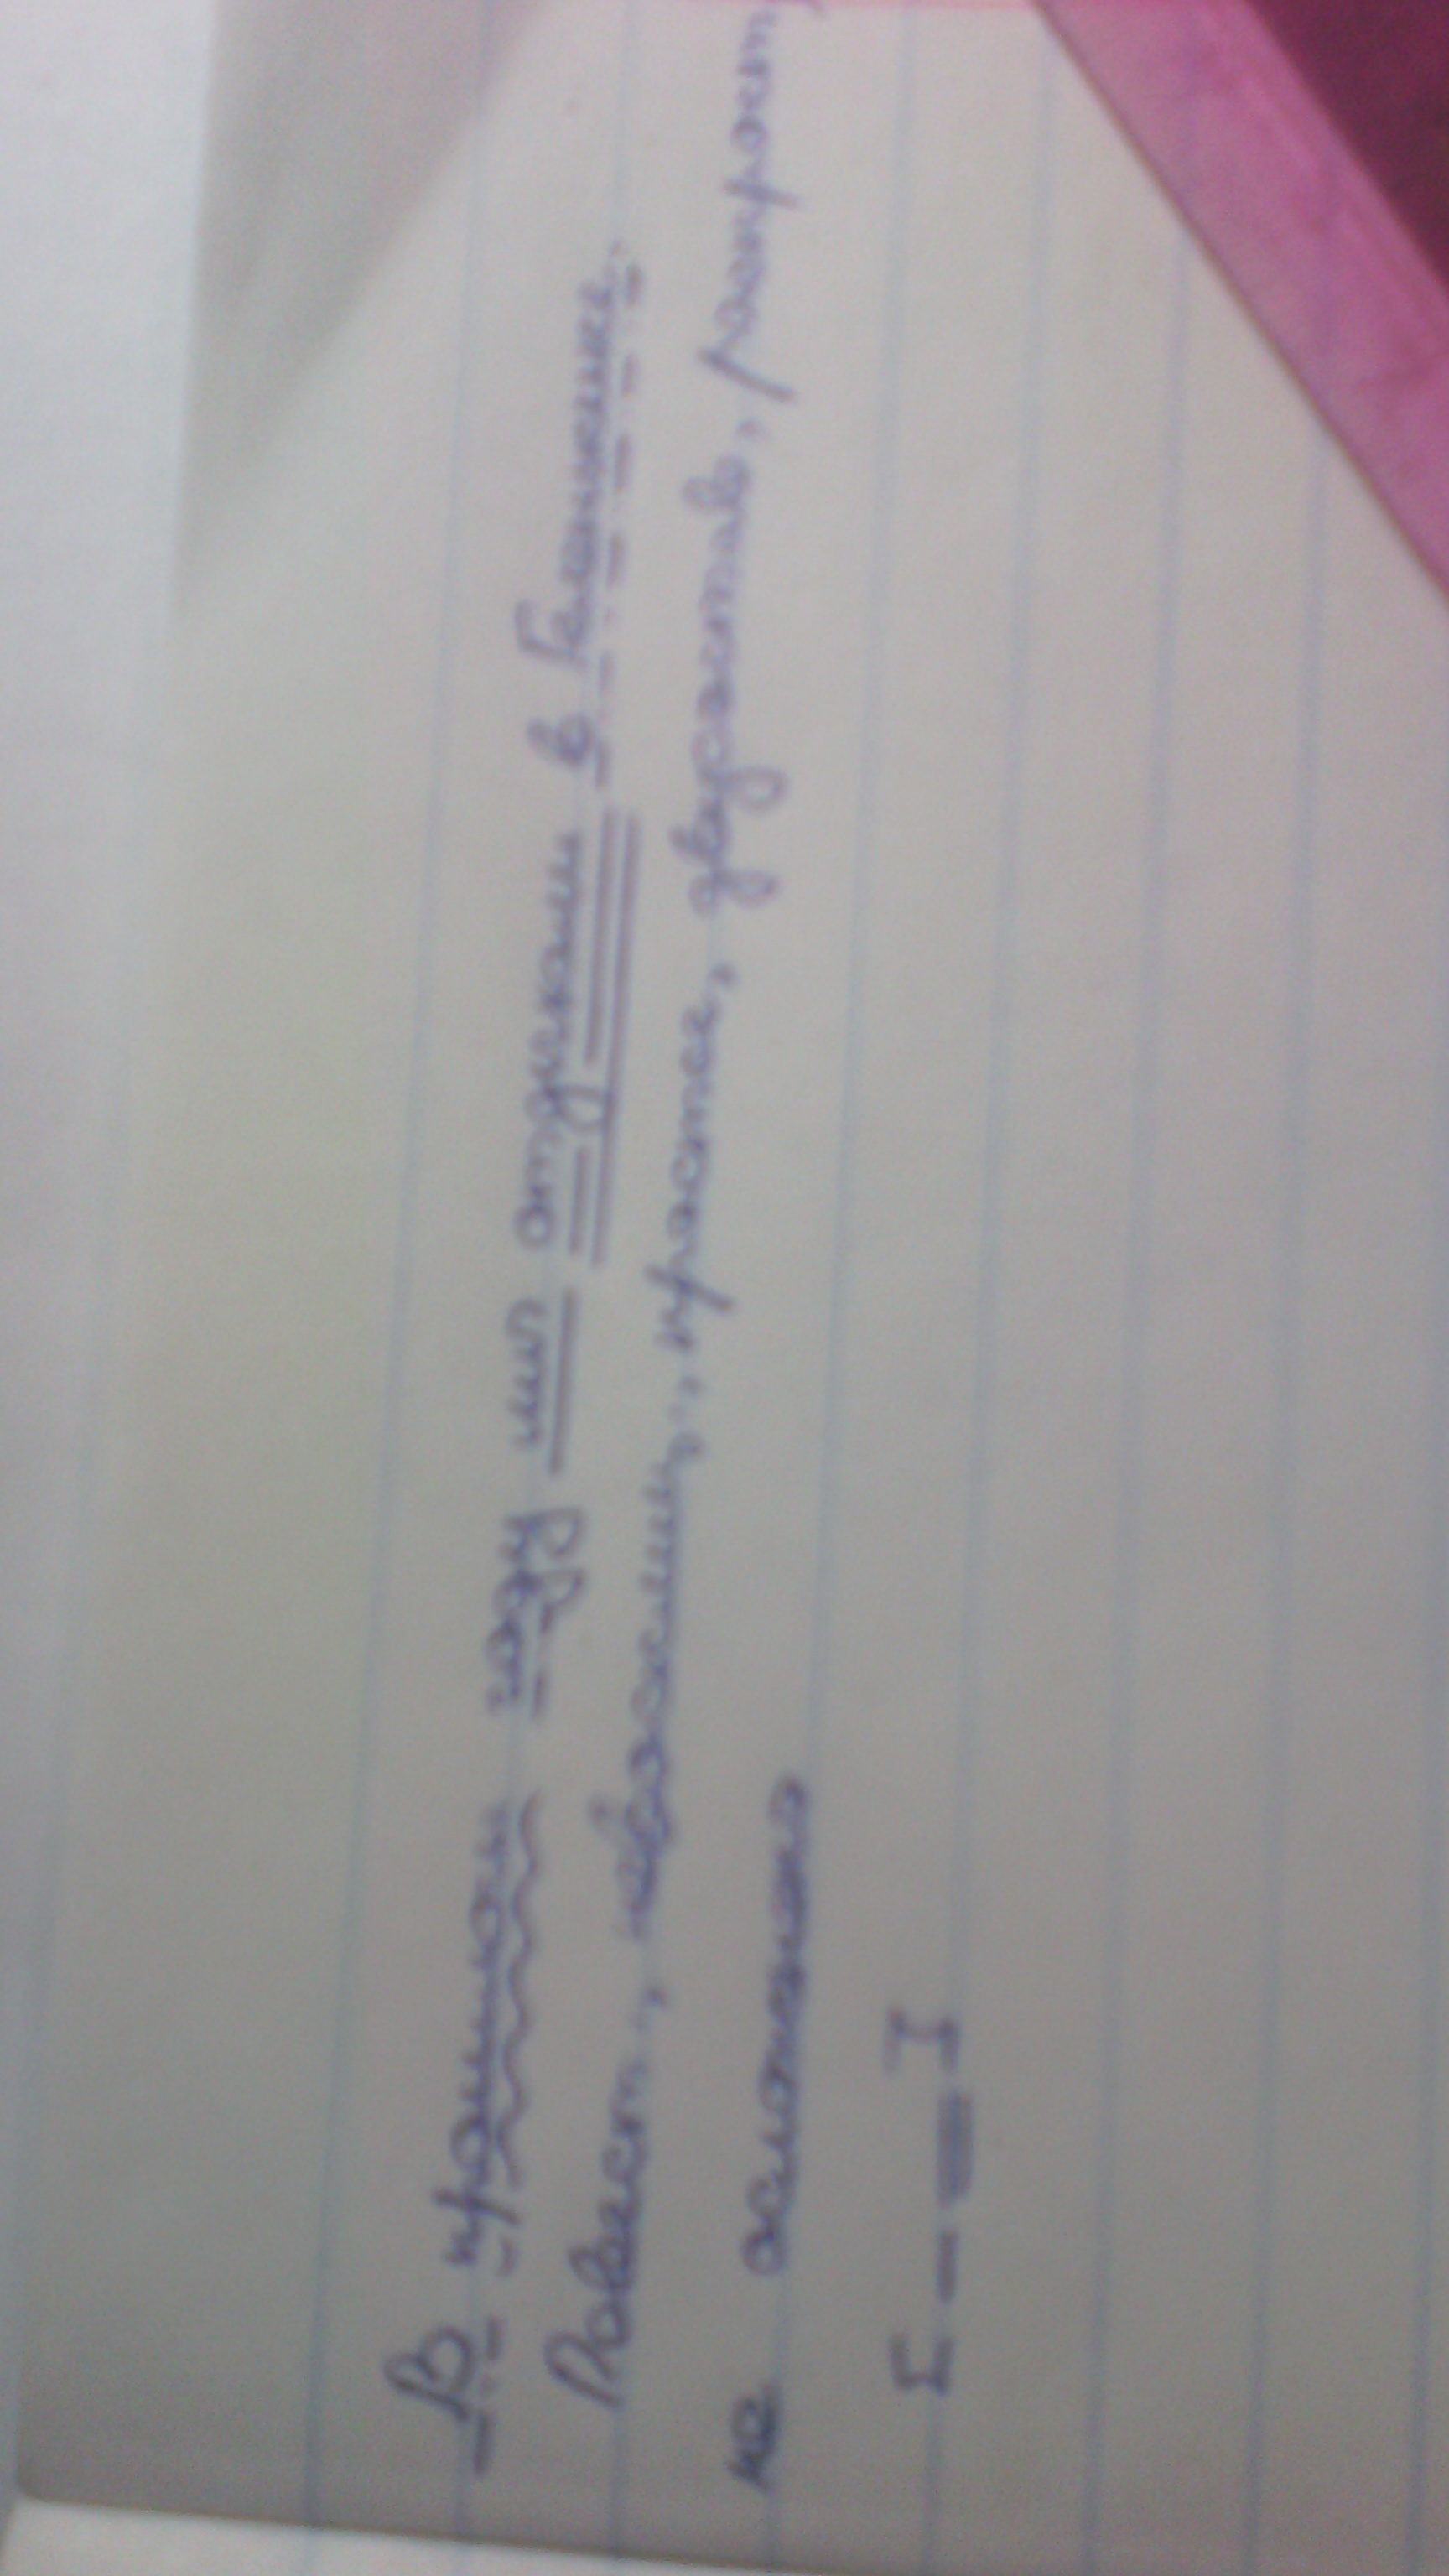 В прошлом году мы отдыхали в Геленжике.
Повест., невосклиц., простое, двусостав., распрост,
не осложнено
[ - = ]